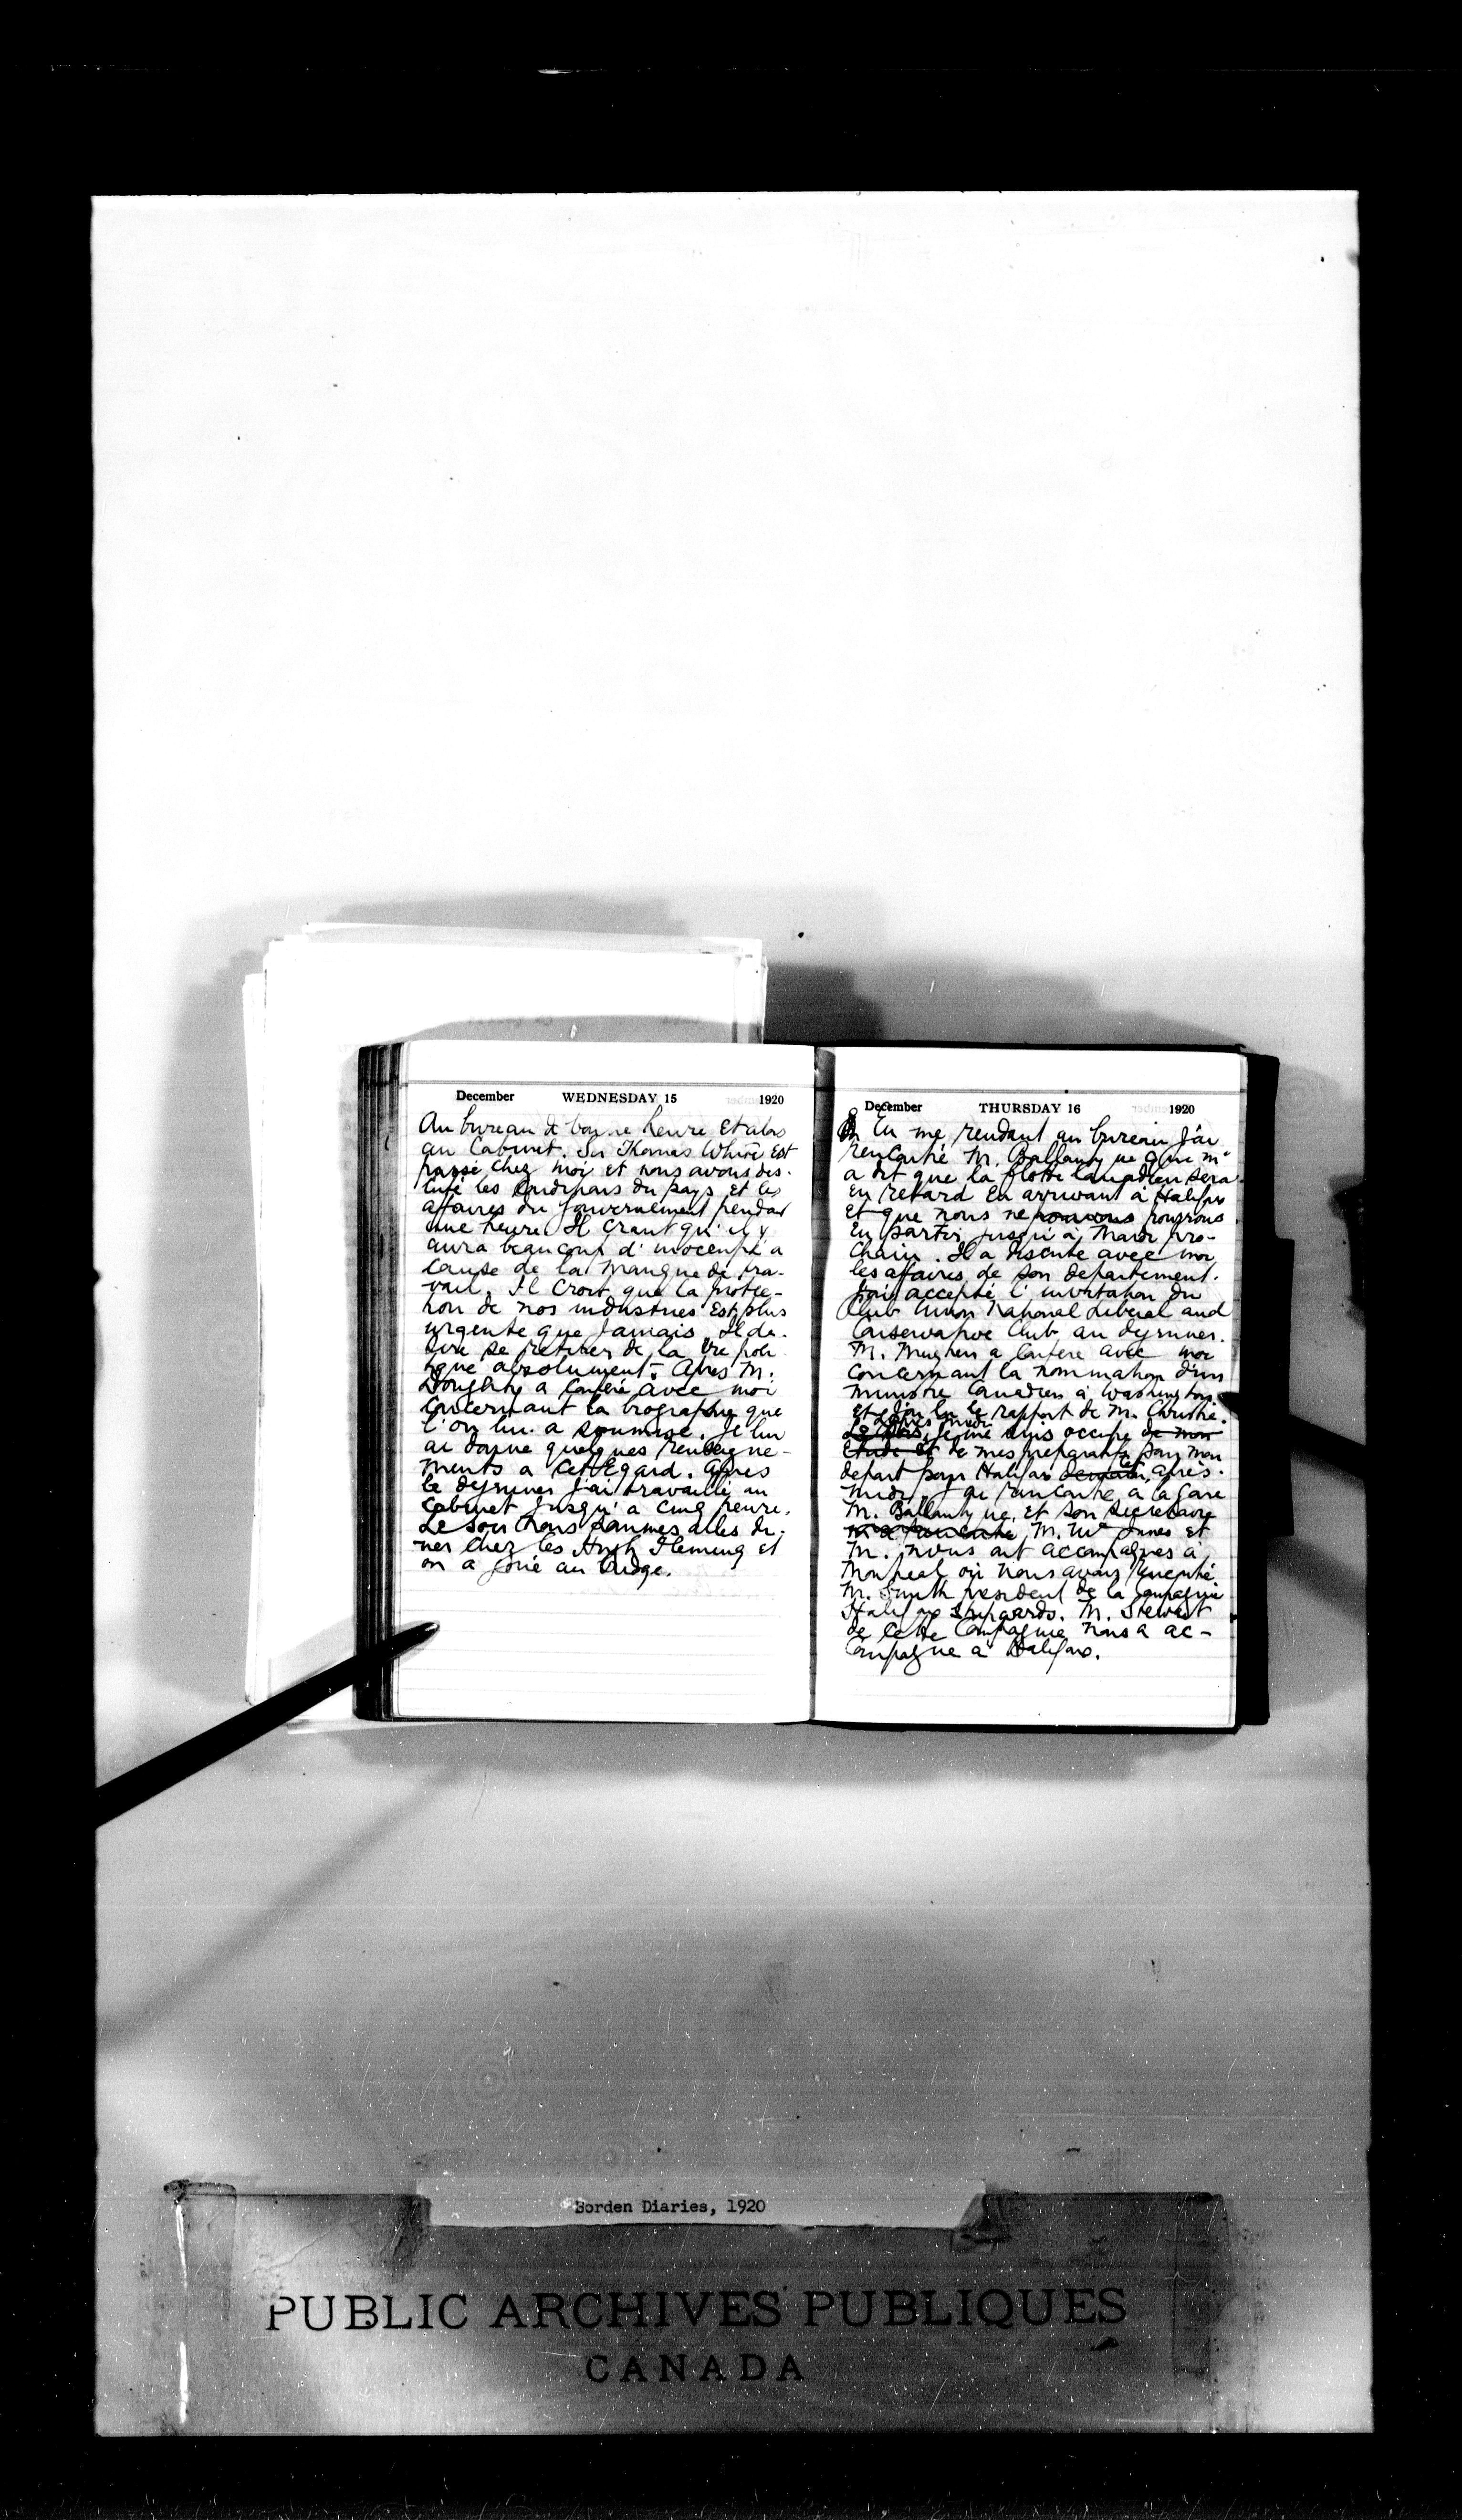 December WEDNESDAY 15 1920
Au bureau de bonne heure et alors
au Cabinet. Sir Thomas White est
passé chez moi et nous avons dis-
cuté les du pays et les
affaires du Gouvernement pendant
une heure. Il craint qu'il y
aura beaucoup d' inoccupé a
cause de la manque de tra-
vail. Il croit que la protec-
tion de nos industries est plus
urgente que jamais. Il de-
sire se retirer de la vie poli-
tique absolument. Apres M.
Doughty a conferé avec moi
concernant la biographie que
l'on lui a soumise. Je lui
ai donne quelques renseigne-
ments a cet egard. Apres
le dejeuner j'ai travaillé au
cabinet jusqu'a cinq heure.
Le soir nous sommes alles di-
ner chez les Hugh Fleming et
on a joué au bridge.
December THURSDAY 16 1920
En me rendant au bureau j'ai
rencontré M. Ballantyne que m'
a dit que la flotte Canadien sera
en retard en arrivant à Halifax
et que nous ne pouvons pourrons
en partir jusqu'a Mardi pro-
chain. Il a discuté avec moi
les affaires de son departement.
J'ai accepté l' invitation du
Club Union National Liberal and
Conservative Club au dejeuner.
M. Meighen a confere avec moi
concernant la nomination d'un
ministre Canadien à Washington
et j'ai lu le rapport de M. Christie.
L'apres midi
je me suis occupé de mon
etude et de mes preparatifs pour mon
depart pour Halifax demain, cet apres-
midi. J'ai rencontré a la gare
M. Ballantyne, et son secretaire
M. McInnes et
M. nous ont accompagnes à
Montreal où nous avons rencontré
M. Smith president de la Compagnie
Halifax Shipyards. M. Stewart
de cette Compagnie nous a ac-
compagne a Halifax.
Borden Diaries, 1920
PUBLIC ARCHIVES PUBLIQUES
CANADA